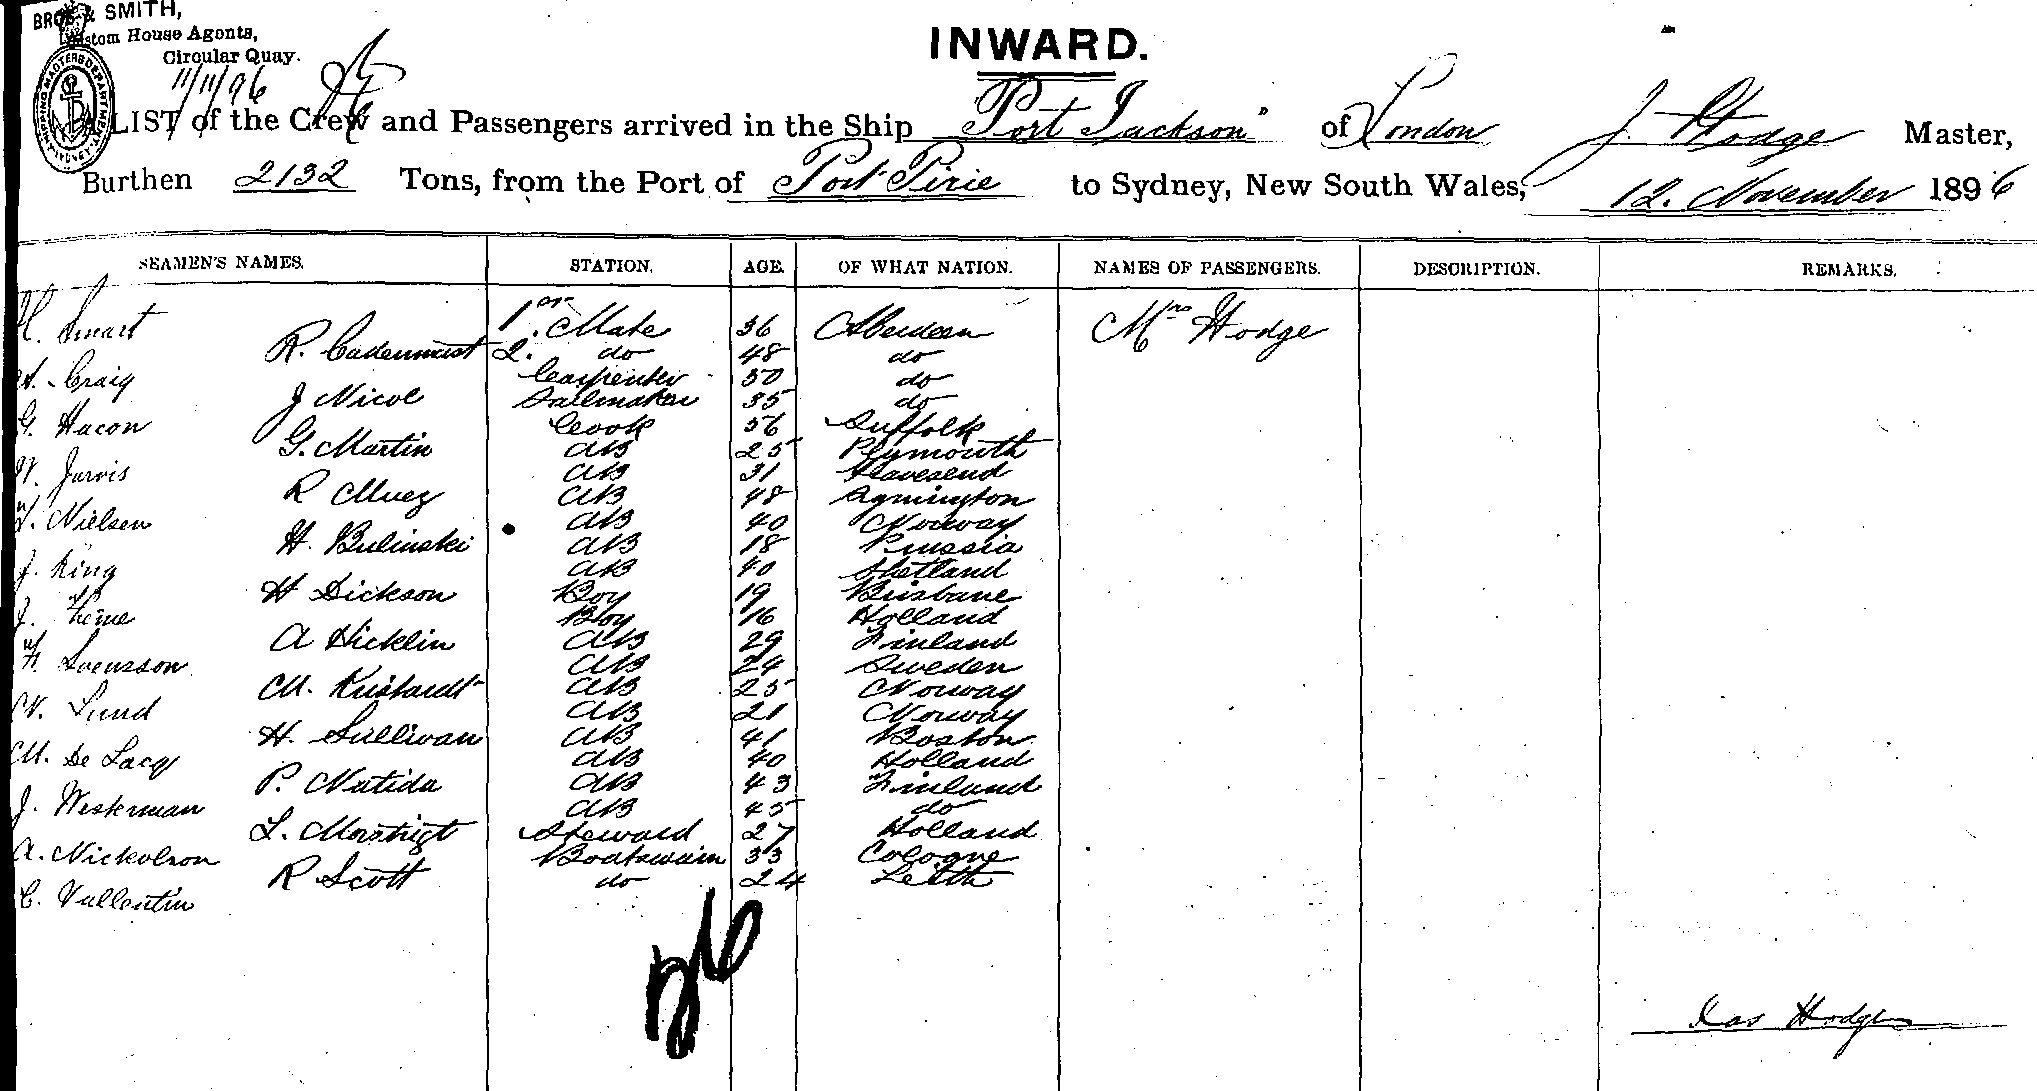 BROS & SMITH,
Custom House Agents,
Circular Quay.
11/11/96
INWARD.
A LIST of the Crew and Passengers arrived in the Ship "Port Jackson" of London J. Hodge Master,
Burthen 2132 Tons, from the Port of Port Pirie to Sydney, New South Wales, 12. November 1896
SEAMEN'S NAMES. STATION. AGE. OF WHAT NATION. NAMES OF PASSENGERS. DESCRIPTION. REMARKS.
Smart 1. Mate 36 Aberdeen Mrs Hodge
R. 2. do 48 do
A. Craig Carpenter 50 do
J Nicol Sailmaker 35 do
G. Hacon Cook 56 Suffolk
G. Martin AB 25 Plymouth
W. Jarvis AB 31 Gravesend
R AB 48 Lymington
Nielsen AB 40 Norway
H. Bulinski AB 18 Prussia
J. King AB 40 Shetland
H Dickson Boy 19 Brisbane
J. Boy 16 Holland
A Hicklin AB 29 Finland
Svensson AB 24 Sweden
M. AB 25 Norway
N. Lund AB 21 Norway
H. Sullivan AB 41 Boston
M. De Lacy AB 40 Holland
P. Natida AB 43 Finland
J. Westerman AB 45 do
L. Steward 27 Holland
A. Nickolson Boatswain 33 Cologne
R Scott do 24 Leith
C. Vallentin
Jas Hodge